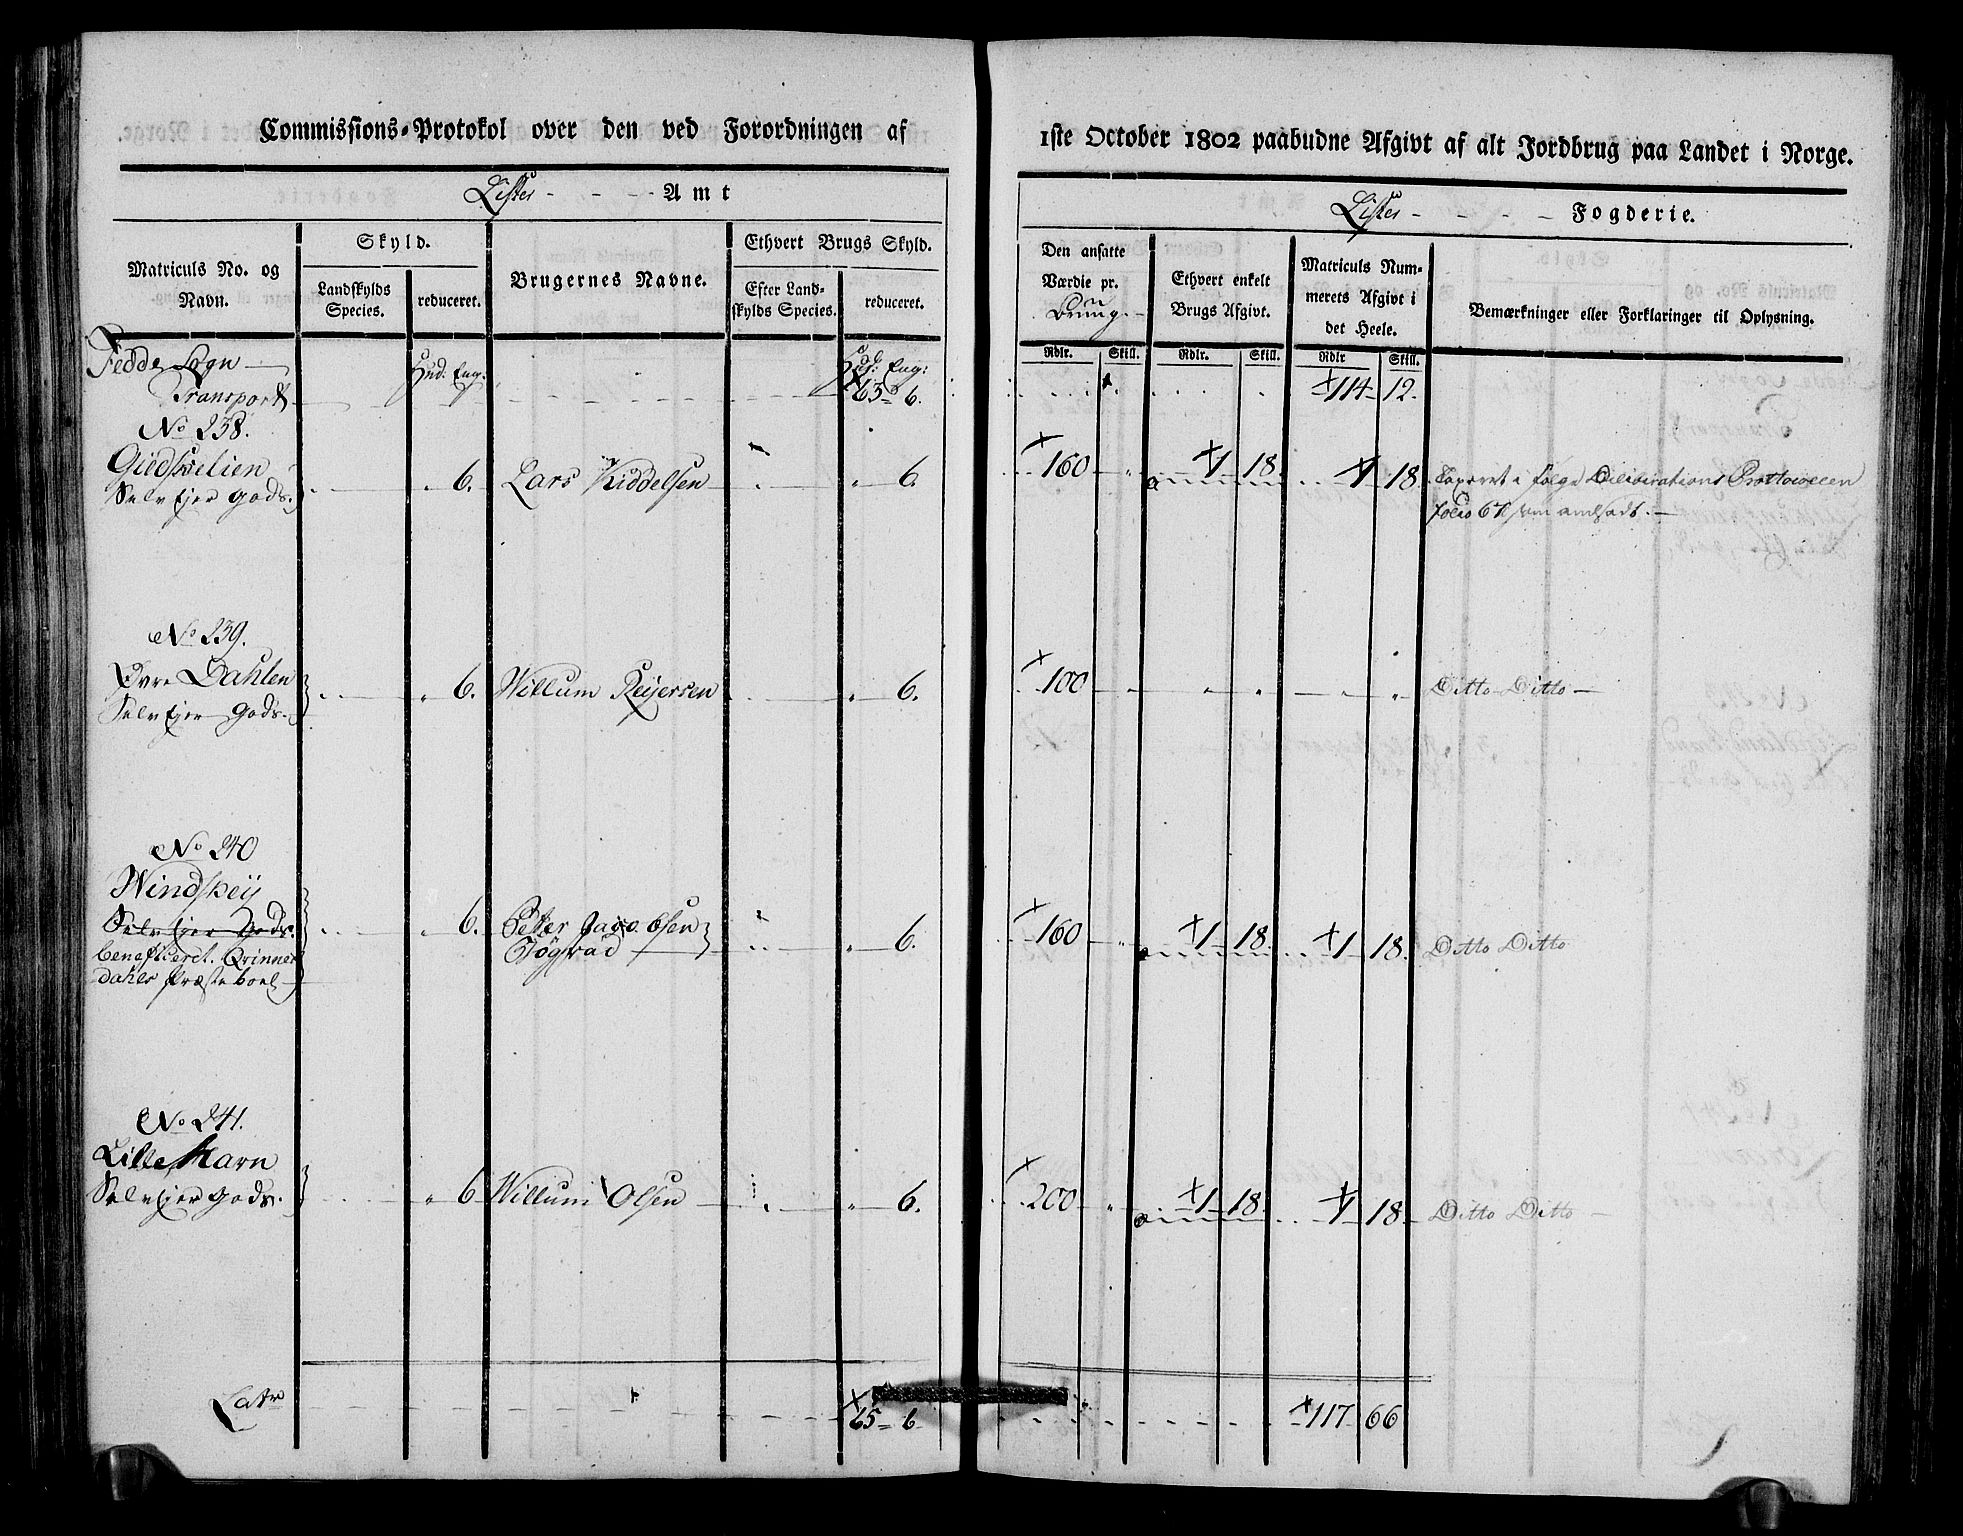 Commissions-Protokol over den ved Forordningen af
1ste October 1802 paabudne Afgivt af alt Jordbrug paa Landet i Norge.
Lister - - - Amt
Lister - - - - Fogderie.
Matriculs No. og Navn.
Skyld.
Landskylds Species.
reduceret.
Brugernes Navne.
Ethvert Brugs Skyld.
Efter Landskylds Species.
reduceret.
Den ansatte Værdie pr. Brug.
Ethvert enkelt Brugs Afgivt.
Matriculs Nummerets Afgivt i det Heele.
Bemærkninger eller Forklaringer til Oplysning.
Rdlr. Skill. Rdlr. Skill. Rdlr Skill.
Fedde Sogn
Hud: Eng: Hud: Eng:
Transport 65 - 6. 114 - 12.
No 238.
Giedskelien
Selv Ejer Gods. " 6. Lars Kiddelsen " 6. 160 - " 1 - 18. 1 18. Taxeret i følge Deliberations Prottocollen
folio 67 som andsadt. -
No 239.
Øvre Dahlen
Selv Ejer Gods. " 6. Willum Reijersen " 6. 100 - " " " " " Ditto Ditto -
No 240
Windskeij
Selv Ejer Gods. " 6. Peder Jacobsen
beneficeret. Qvinnes Føgstad " 6. 160 - " 1 - 18. 1 - 18. Ditto Ditto
dahls Præste boel -
No 241.
Lille Harn
Selv Ejer Gods. " 6 Willum Olsen " 6. 200 - " 1 - 18. 1 - 18. Ditto Ditto -
Latr 65 - 6 117 - 66